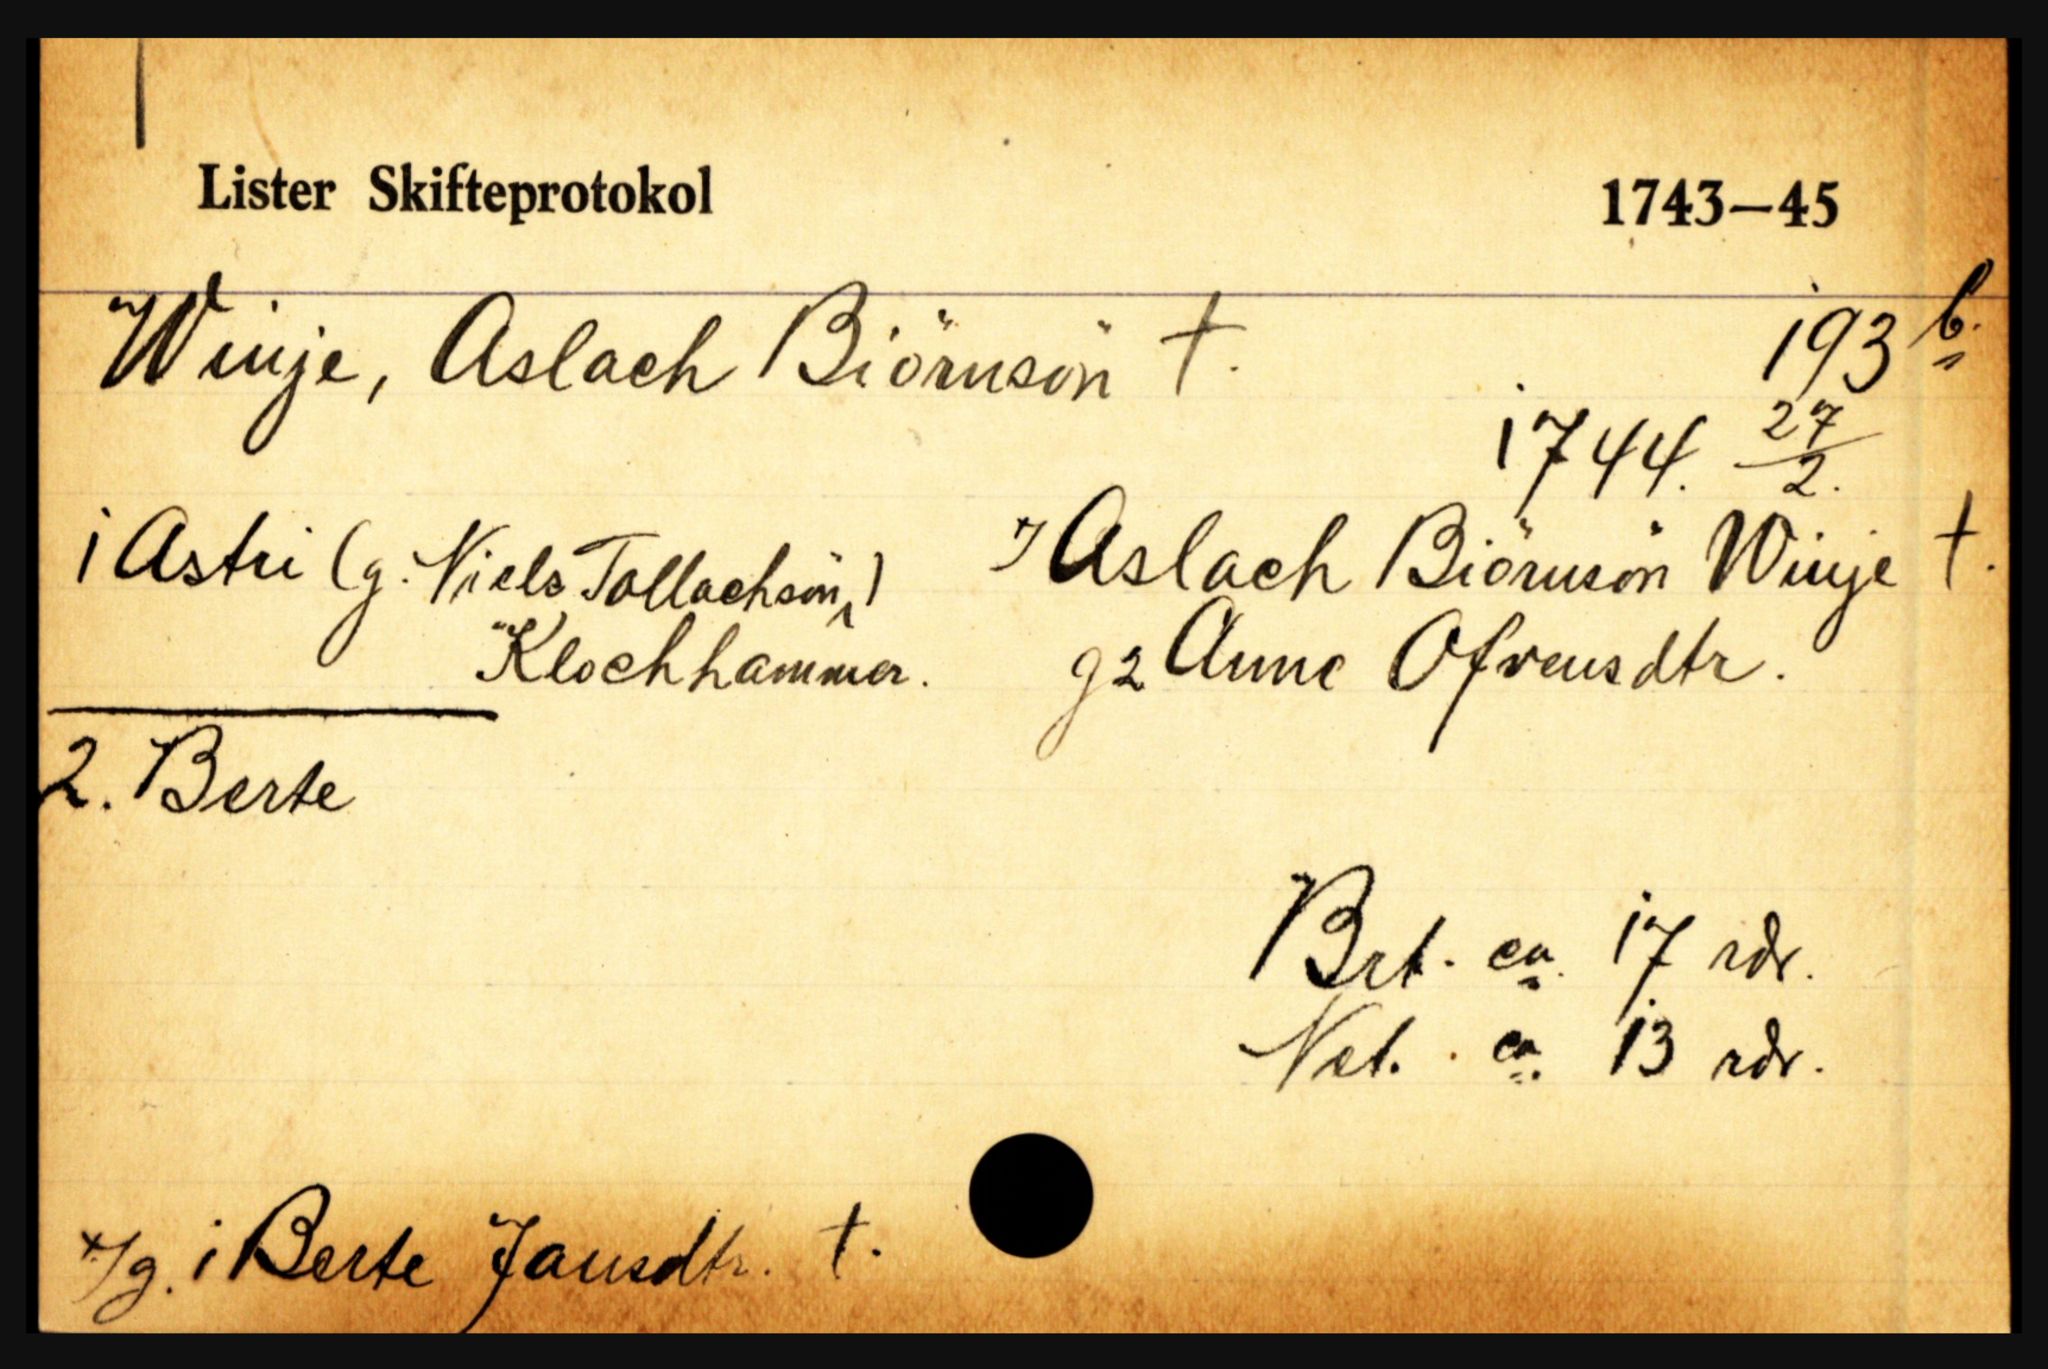 Lister Skifteprotokol 1743—45
Winje, Aslach Biörnsön †. 193 b.
1744. 27/2.
1 Astri (g. Niels Tollachsön,) x/ Aslach Biörnsön Winje †.
Klochhammer. g 2 Anne Ofvensdtr.
2. Berte
Brt. ca. 17 rdr.
Net. ca. 13 rdr.
x/ g. 1 Berte Jansdtr. †.